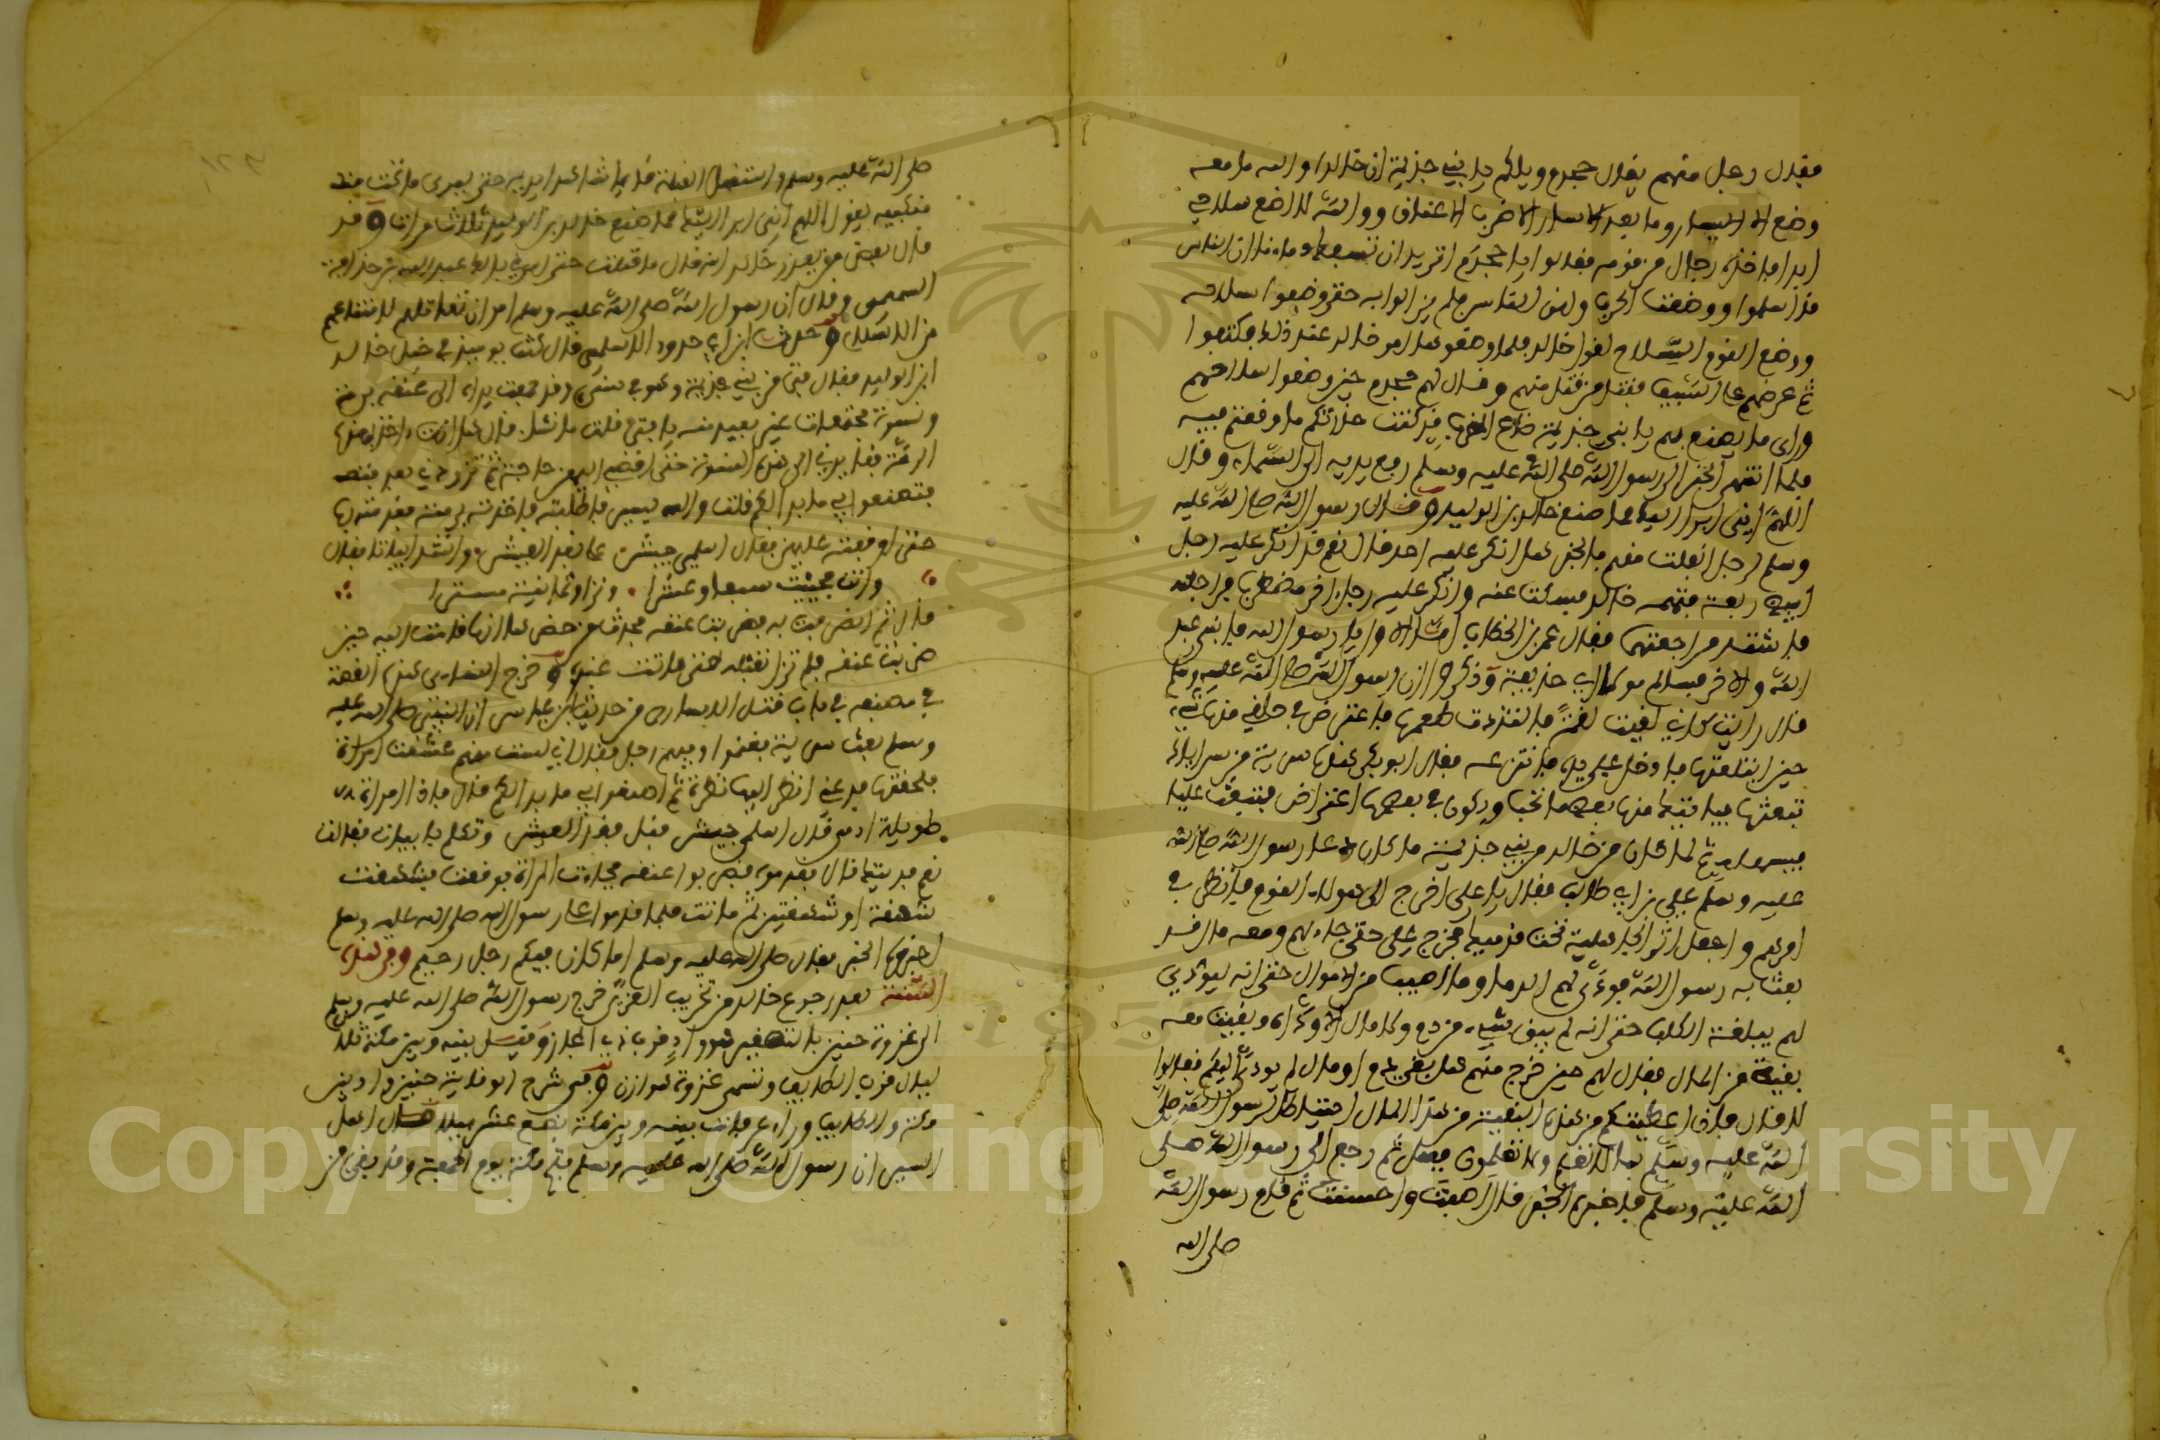 فقال رجل منهم يقال جحدم ويلكم يا بني جذيمة ان خالدا والله ما معه
وضع الا اليسار وما بعد الاسار الا ضرب الاعناق ووالله لا اضع سلاحي
ابدا فاخذه رجال من قومه فقالوا يا جحدم اتريد ان تسفك دماءنا ان الناس
قد اسلموا ووضعت الحرب وامن الناس فلم يزالوا به حتى وضعوا سلاحه
ووضع القوم السلاح لقول خالد فلما وضعوه امر خالد عند ذلك فكتفوا
ثم عرضهم على السيف فقتل من قتل منهم وقال لهم جحدم حين وضعوا سلاحهم
وراى ما يصنع بهم يا بني جذيمة ضاع الضرب قد كنت حذرتكم ما وقعتم فيه
فلما انتهى الخبر الى رسول الله صلى الله عليه وسلم رفع يديه الى السماء وقال
اللهم اني ابرا اليك مما صنع خالد بن الوليد وقال رسول الله صلى الله عليه
وسلم لرجل انفلت منهم بالخبر هل انكر عليه احد قال نعم قد انكر عليه رجل
ابيض ربعة فنهمه خالد فسكت عنه وانكر عليه رجل اخر مضطرب فراجعه
فاشتدت مراجعتهما فقال عمر بن الخطاب اما الاول يا رسول الله فابني عبد
الله والاخر فسالم مولى ابي حذيفة وذكروا ان رسول الله صلى الله عليه وسلم
قال رايت كاني لقمت لقمة فالتذذت طعمها فاعترض في حلقي منها شيء
حين ابتلعتها فادخل علي يده فانتزعه فقال ابو بكر هذه سرية من سراياك
تبعثها فياتيك منها بعض ما تحب ويكون في بعضها اعتراض فتبعث عليا
فيسهله ثم لما كان من خالد في بني جذيمة ما كان دعا رسول الله صلى الله
عليه وسلم علي بن ابي طالب فقال يا علي اخرج الى هولاء القوم فانظر في
امرهم واجعل امر الجاهلية تحت قدميك فخرج علي حتى جاءهم ومعه مال قد
بعث به رسول الله فودى لهم الدما وما اصيب من الاموال حتى انه ليودي
لهم ميلغة الكلب حتى انه لم يبق شيء من دم ولا مال الا وداه وبقيت معه
بقية من المال فقال لهم حين خرج منهم هل بقي دم او مال لم يود اليكم فقالوا
لا قال فاني اعطيتكم من هذه البقية من هذا المال احتياطا لرسول الله صلى
الله عليه وسلم بما لا نعلم ولا تعلمون ففعل ثم رجع الى رسول الله صلى
الله عليه وسلم فاخبره الخبر قال اصبت واحسنت ثم قام رسول الله
صلى الله
صلى الله عليه وسلم واستقبل القبلة قايما شاهرا يديه حتى يرى ما تحت
منكبيه يقول اللهم اني ابرا اليك مما صنع خالد بن الوليد ثلاث مرات وقد
قال بعض من يعذر خالدا انه قال ما قاتلت حتى امرني بذلك عبد الله بن حذافة
السهمي وقال ان رسول الله صلى الله عليه وسلم امر ان تقاتلهم لامتناعهم
من الاسلام وحدث ابن ابي حدرد الاسلمي قال كنت يوميذ في خيل خالد
ابن الوليد فقال فتى من بني جذيمة وهو في سني وقد جمعت يداه الى عنقه برمة
ونسوة مجتمعات غير بعيد منه يا فتى قلت ما تشاء قال هل انت اخذ بهذه
الرمة فقايدي الى هذه النسوة حتى اقضي اليهن حاجة ثم تردني بعد
فتصنعوا بي ما بدا لكم قلت والله ليسير ما طلبت فاخذت برمته فقدته بها
حتى اوقفته عليهن فقال اسلمي حبيش على نفد العيش وانشد ابياتا فقالت
وانت فحييت سبعا وعشرا . وترا وثمانية تترى
قال ثم انصرفت به فضربت عنقه فحدث من حضر هذا انها قامت اليه حين
ضربت عنقه فلم تزل تقبله حتى ماتت عنده وخرج النسائي هذه القصة
في مصنفه في باب قتل الاسارى من حديث ابن عباس ان النبي صلى الله عليه
وسلم بعث سرية فغنموا وفيهم رجل فقال اني لست منهم عشقت امراة
فلحقتها فدعوني انظر اليها نظرة ثم اصنعوا بي ما بدا لكم قال فاذا امراة
طويلة ادماء قال اسلمي حبيش قبل نفاذ العيش وتكلم بابيات فقالت
نعم فديتك قال فقدموه فضربوا عنقه فجاءت المراة فوقفت فشهقت
شهقة او شهقتين ثم ماتت فلما قدموا على رسول الله صلى الله عليه وسلم
اخبروه الخبر فقال صلى الله عليه وسلم اما كان فيكم رجل رحيم وفي هذه
السنة بعد رجوع خالد من تخريب العزى خرج رسول الله صلى الله عليه وسلم
الى غزوة حنين بالتصغير وهو واد قرب ذي المجاز وقيل بينه وبين مكة ثلاث
ليال قرب الطايف وتسمى غزوة هوازن وفي شرح
مكة والطايف وراء عرفات بينه وبين مكة بضع عشر ميلا قال اهل
السير ان رسول الله صلى الله عليه وسلم فتح مكة يوم الجمعة وقد بقي من